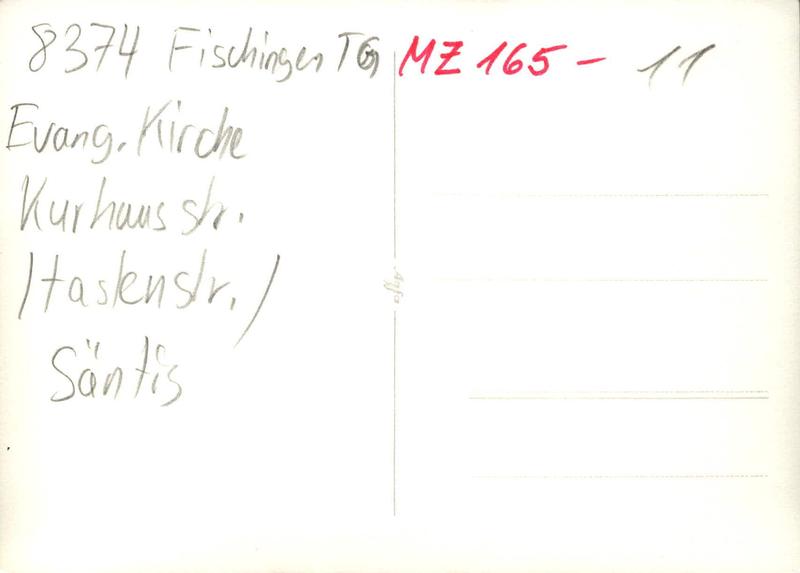 8374 Fischingen TG
MZ 165 - 11
Evang. Kirche
Kurhausstr.
/Haslenstr./
Säntis
Agfa